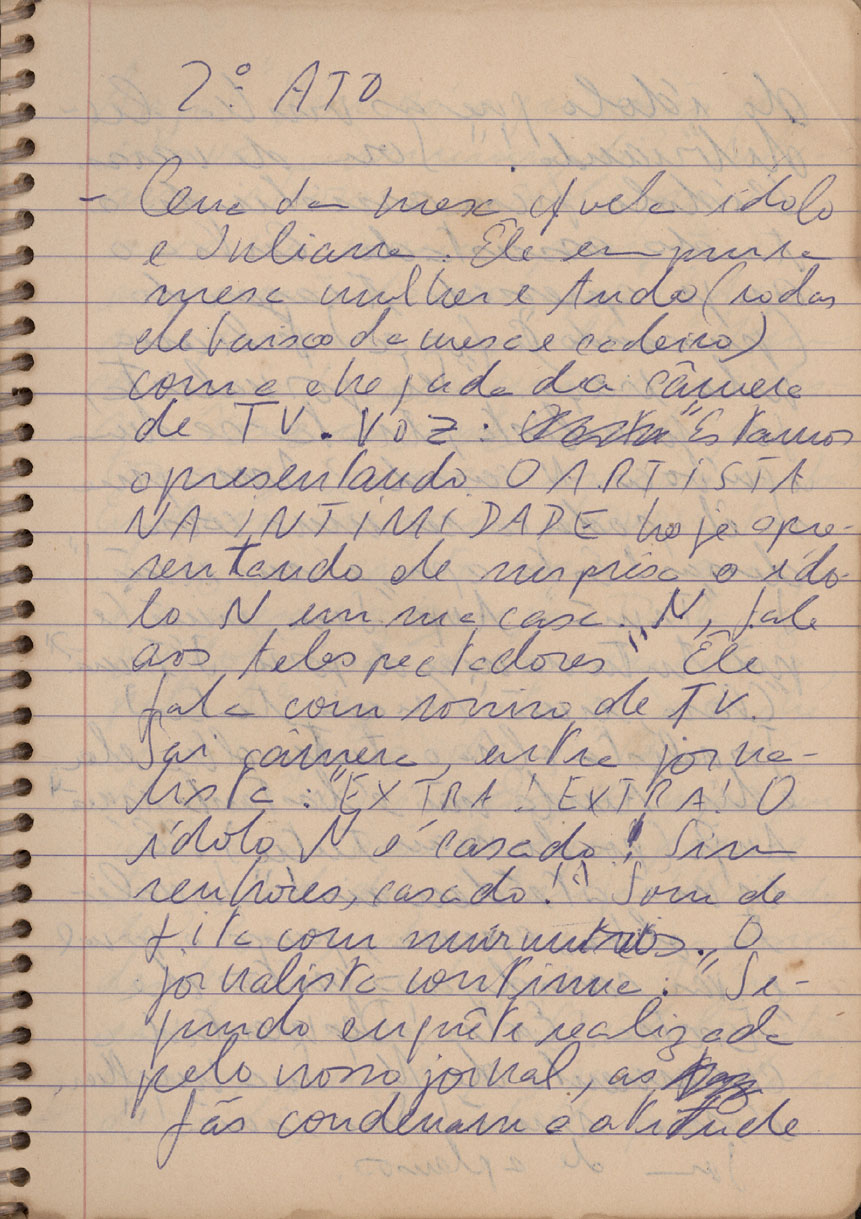 2º ATO
- Cena da mesa q/vela ídolo
e Juliana. Êle empurra
mesa mulher e tudo (rodas
debaixo da mesa e cadeira)
com a chegada da câmera
de TV. VOZ: "Estamos
apresentando O ARTISTA
NA INTIMIDADE hoje apre-
sentando de surprêsa o ído-
lo N em sua casa. N, fale
aos telespectadores" Êle
fala com sorriso de TV.
Sai câmera, entra jorna-
lista: "EXTRA! EXTRA! O
ídolo N é casado! Sim
senhores, casado!" Som de
fita com murmúrios. O
jornalista continua: "Se-
gundo enquête realizada
pelo nosso jornal, as
fãs condenam a atitude